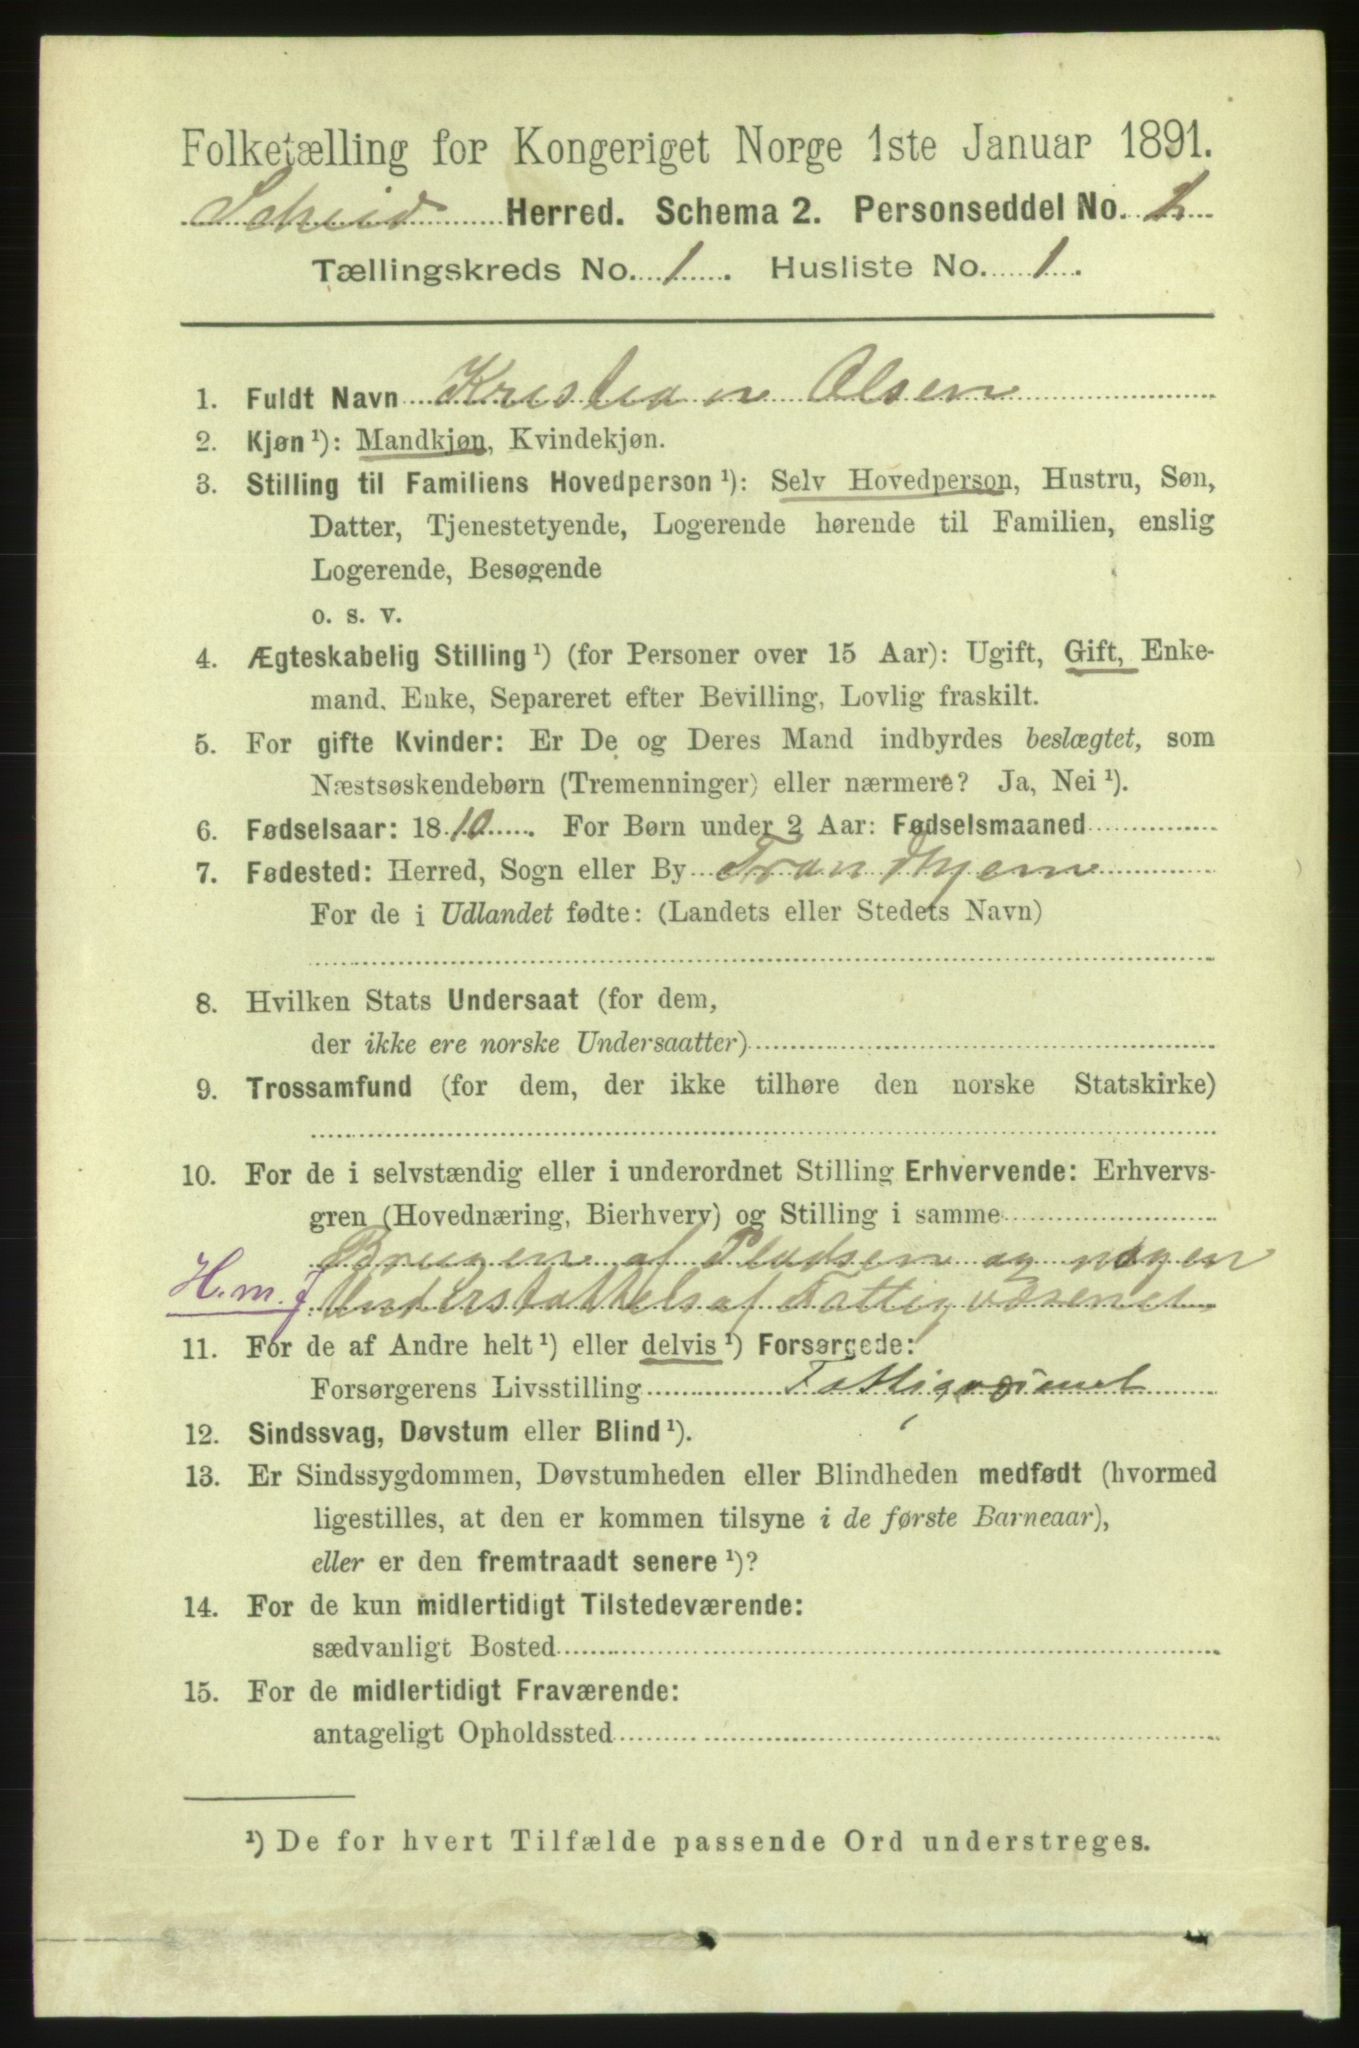 Folketælling for Kongeriget Norge 1ste Januar 1891.
Scheid Herred. Schema 2. Personseddel No. 2
Tællingskreds No. 1. Husliste No. 1.
1. Fuldt Navn Kristian Olsen
2. Kjøn ¹): Mandkjøn, Kvindekjøn.
3. Stilling til Familiens Hovedperson ¹): Selv Hovedperson, Hustru, Søn,
Datter, Tjenestetyende, Logerende hørende til Familien, enslig
Logerende, Besøgende
o. s. v.
4. Ægteskabelig Stilling ¹) (for Personer over 15 Aar): Ugift, Gift, Enke-
mand, Enke, Separeret efter Bevilling, Lovlig fraskilt.
5. For gifte Kvinder: Er De og Deres Mand indbyrdes beslægtet, som
Næstsøskendebørn (Tremenninger) eller nærmere? Ja, Nei ¹).
6. Fødselsaar: 1810. For Børn under 2 Aar: Fødselsmaaned
7. Fødested: Herred, Sogn eller By Trondhjem
For de i Udlandet fødte: (Landets eller Stedets Navn)
8. Hvilken Stats Undersaat (for dem,
der ikke ere norske Undersaatter)
9. Trossamfund (for dem, der ikke tilhøre den norske Statskirke)
10. For de i selvstændig eller i underordnet Stilling Erhvervende: Erhvervs-
gren (Hovednæring, Bierhverv) og Stilling i samme
Brugen af Pladsen og nogen
H. m. f Understøttelse af Fattigvæsenet
11. For de af Andre helt ¹) eller delvis ¹) Forsørgede:
Forsørgerens Livsstilling Fattigvæsenet
12. Sindssvag, Døvstum eller Blind ¹).
13. Er Sindssygdommen, Døvstumheden eller Blindheden medfødt (hvormed
ligestilles, at den er kommen tilsyne i de første Barneaar),
eller er den fremtraadt senere ¹)?
14. For de kun midlertidigt Tilstedeværende:
sædvanligt Bosted
15. For de midlertidigt Fraværende:
antageligt Opholdssted
¹) De for hvert Tilfælde passende Ord understreges.